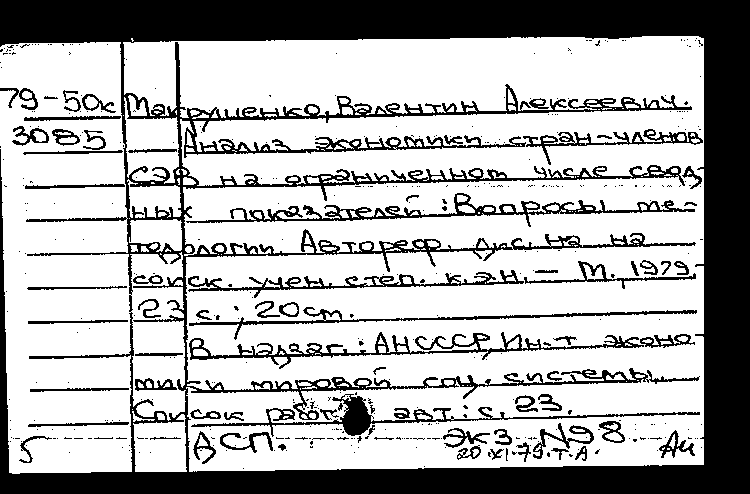 79-50к Макрушенко, Валентин Алексеевич.
3085 Анализ экономики стран-членов
СЭВ на ограниченном числе свод-
ных показателей : Вопросы ме-
тодологии. Автореф. дис. на на
соиск. учен. степ. к.э.н. — М., 1979.-
23 с. ; 20 см.
В надзаг.: АН СССР, Ин-т эконо-
мики мировой соц. системы.
Список работ авт.: с. 23.
5 АСП. Экз. N98.
20.XI.79.Т.А.